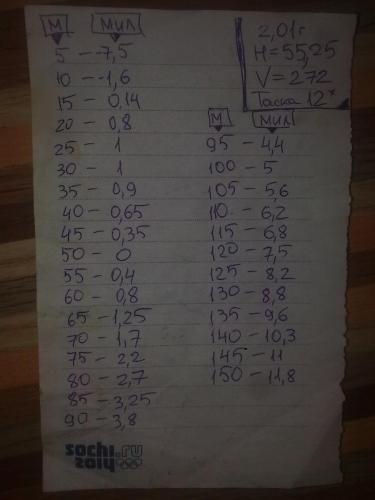 М МИЛ
5 - -7,5
10 - -1,6
15 - 0,14
20 - 0,8
25 - 1
30 - 1
35 - 0,9
40 - 0,65
45 - 0,35
50 - 0
55 - 0,4
60 - 0,8
65 - 1,25
70 - 1,7
75 - 2,2
80 - 2,7
85 - 3,25
90 - 3,8
2,01г
H=55,25
V=272
Таска 12х
М МИЛ
95 - 4,4
100 - 5
105 - 5,6
110 - 6,2
115 - 6,8
120 - 7,5
125 - 8,2
130 - 8,8
135 - 9,6
140 - 10,3
145 - 11
150 - 11,8
sochi.ru
2014